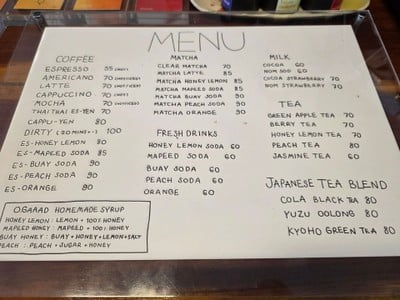 MENU
COFFEE
ESPRESSO 55 (HOT)
AMERICANO 70 (HOT/ICED)
LATTE 70 (HOT/ICED)
CAPPUCCINO 70 (HOT/ICED)
MOCHA 70 (HOT/ICED)
THAITHAI ES-YEN 70
CAPPU-YEN 80
DIRTY (20 MINS..) 100
ES-HONEY LEMON 80
ES-MAPEED SODA 85
ES-BUAY SODA 90
ES-PEACH SODA 90
ES-ORANGE 80
OGAAAD HOMEMADE SYRUP
HONEY LEMON : LEMON + 100% HONEY
MAPEED HONEY : MAPEED + 100% HONEY
BUAY HONEY : BUAY + HONEY + LEMON + SALT
PEACH : PEACH + SUGAR + HONEY
MATCHA
CLEAR MATCHA 70
MATCHA LATTE 85
MATCHA HONEY LEMON 85
MATCHA MAPEED SODA 85
MATCHA BUAY SODA 90
MATCHA PEACH SODA 90
MATCHA ORANGE 90
FRESH DRINKS
HONEY LEMON SODA 60
MAPEED SODA 60
BUAY SODA 60
PEACH SODA 60
ORANGE 60
MILK
COCOA 60
NOM SOD 60
COCOA STRAWBERRY 70
NOM STRAWBERRY 70
TEA
GREEN APPLE TEA 70
BERRY TEA 70
HONEY LEMON TEA 70
PEACH TEA 80
JASMINE TEA 60
JAPANESE TEA BLEND
COLA BLACK TEA 80
YUZU OOLONG 80
KYOHO GREEN TEA 80